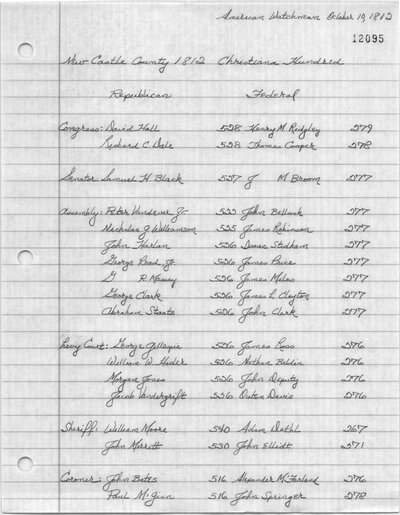 American Watchman October 10, 1812
12095
New Castle County 1812 Christiana Hundred
Republican Federal
Congress: David Hall 528 Henry M. Ridgley 279
Richard C. Dale 528 Thomas Cooper 278
Senator: Samuel H. Black 527 J M Broom 277
Assembly: Peter Vandever Jr. 525 John Bellach 277
Nicholas G Williamson 525 James Robinson 277
John Harlan 526 Isaac Stidham 277
George Read Jr. 526 James Price 277
G R Massey 526 James Miles 277
George Clark 526 James L. Clayton 277
Abraham Staats 526 John Clark 277
Levy Court: George Gillespie 526 James Ross 276
William W. 526 Nathan Baldin 276
Morgan Jones 526 John Deputy 276
Jacob Vandergrift 526 Outen Davis 276
Sheriff: William Moore 540 Adam 267
John Merritt 530 John Elliott 271
Coroner: John Bates 516 Alexander McFarland 276
Paul McGinn 516 John Springer 278